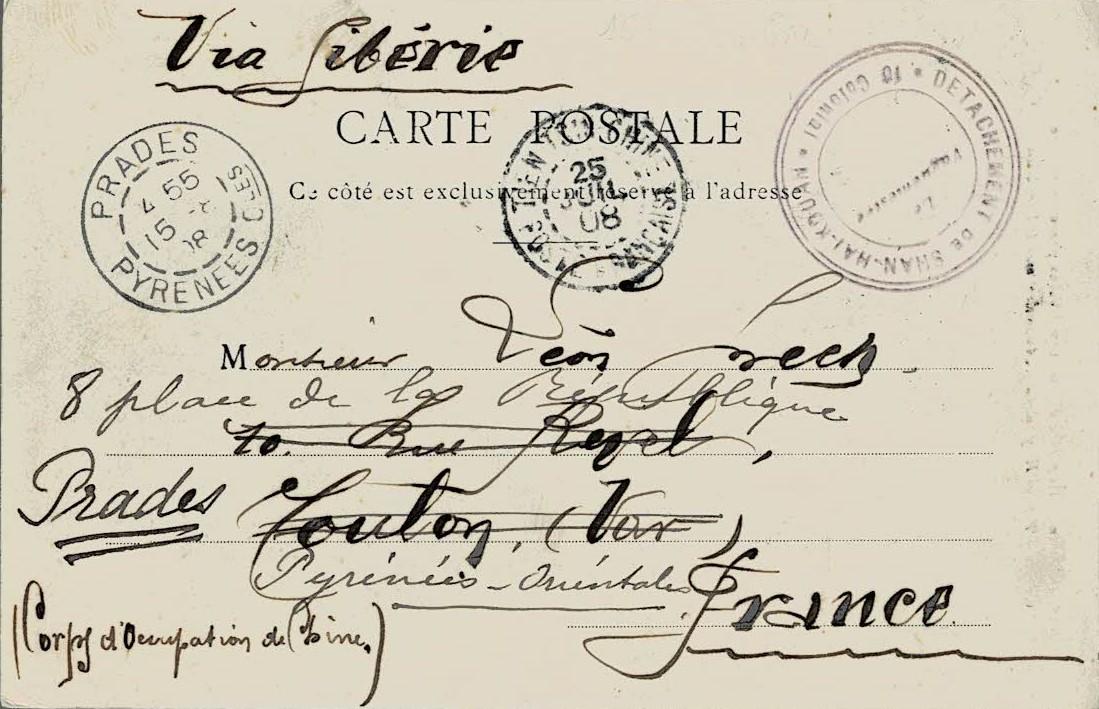 Via Sibérie
CARTE POSTALE
Ce côté est exclusivement réservé à l'adresse
PRADES
PYRENEES OR LES
15 -8 08
TIEN-TSIN CHINE
25 JUIL 08
POSTE FRANÇAISE
DETACHEMENT DE SHAN-HAI-KOUAN • 16 Colonial •
Le
Vaguemestre
Monsieur Léon
8 place de la République
10. Rue Revel,
Prades Toulon, (Var)
Pyrénées-Orientales
France
(Corps d'Occupation de Chine.)